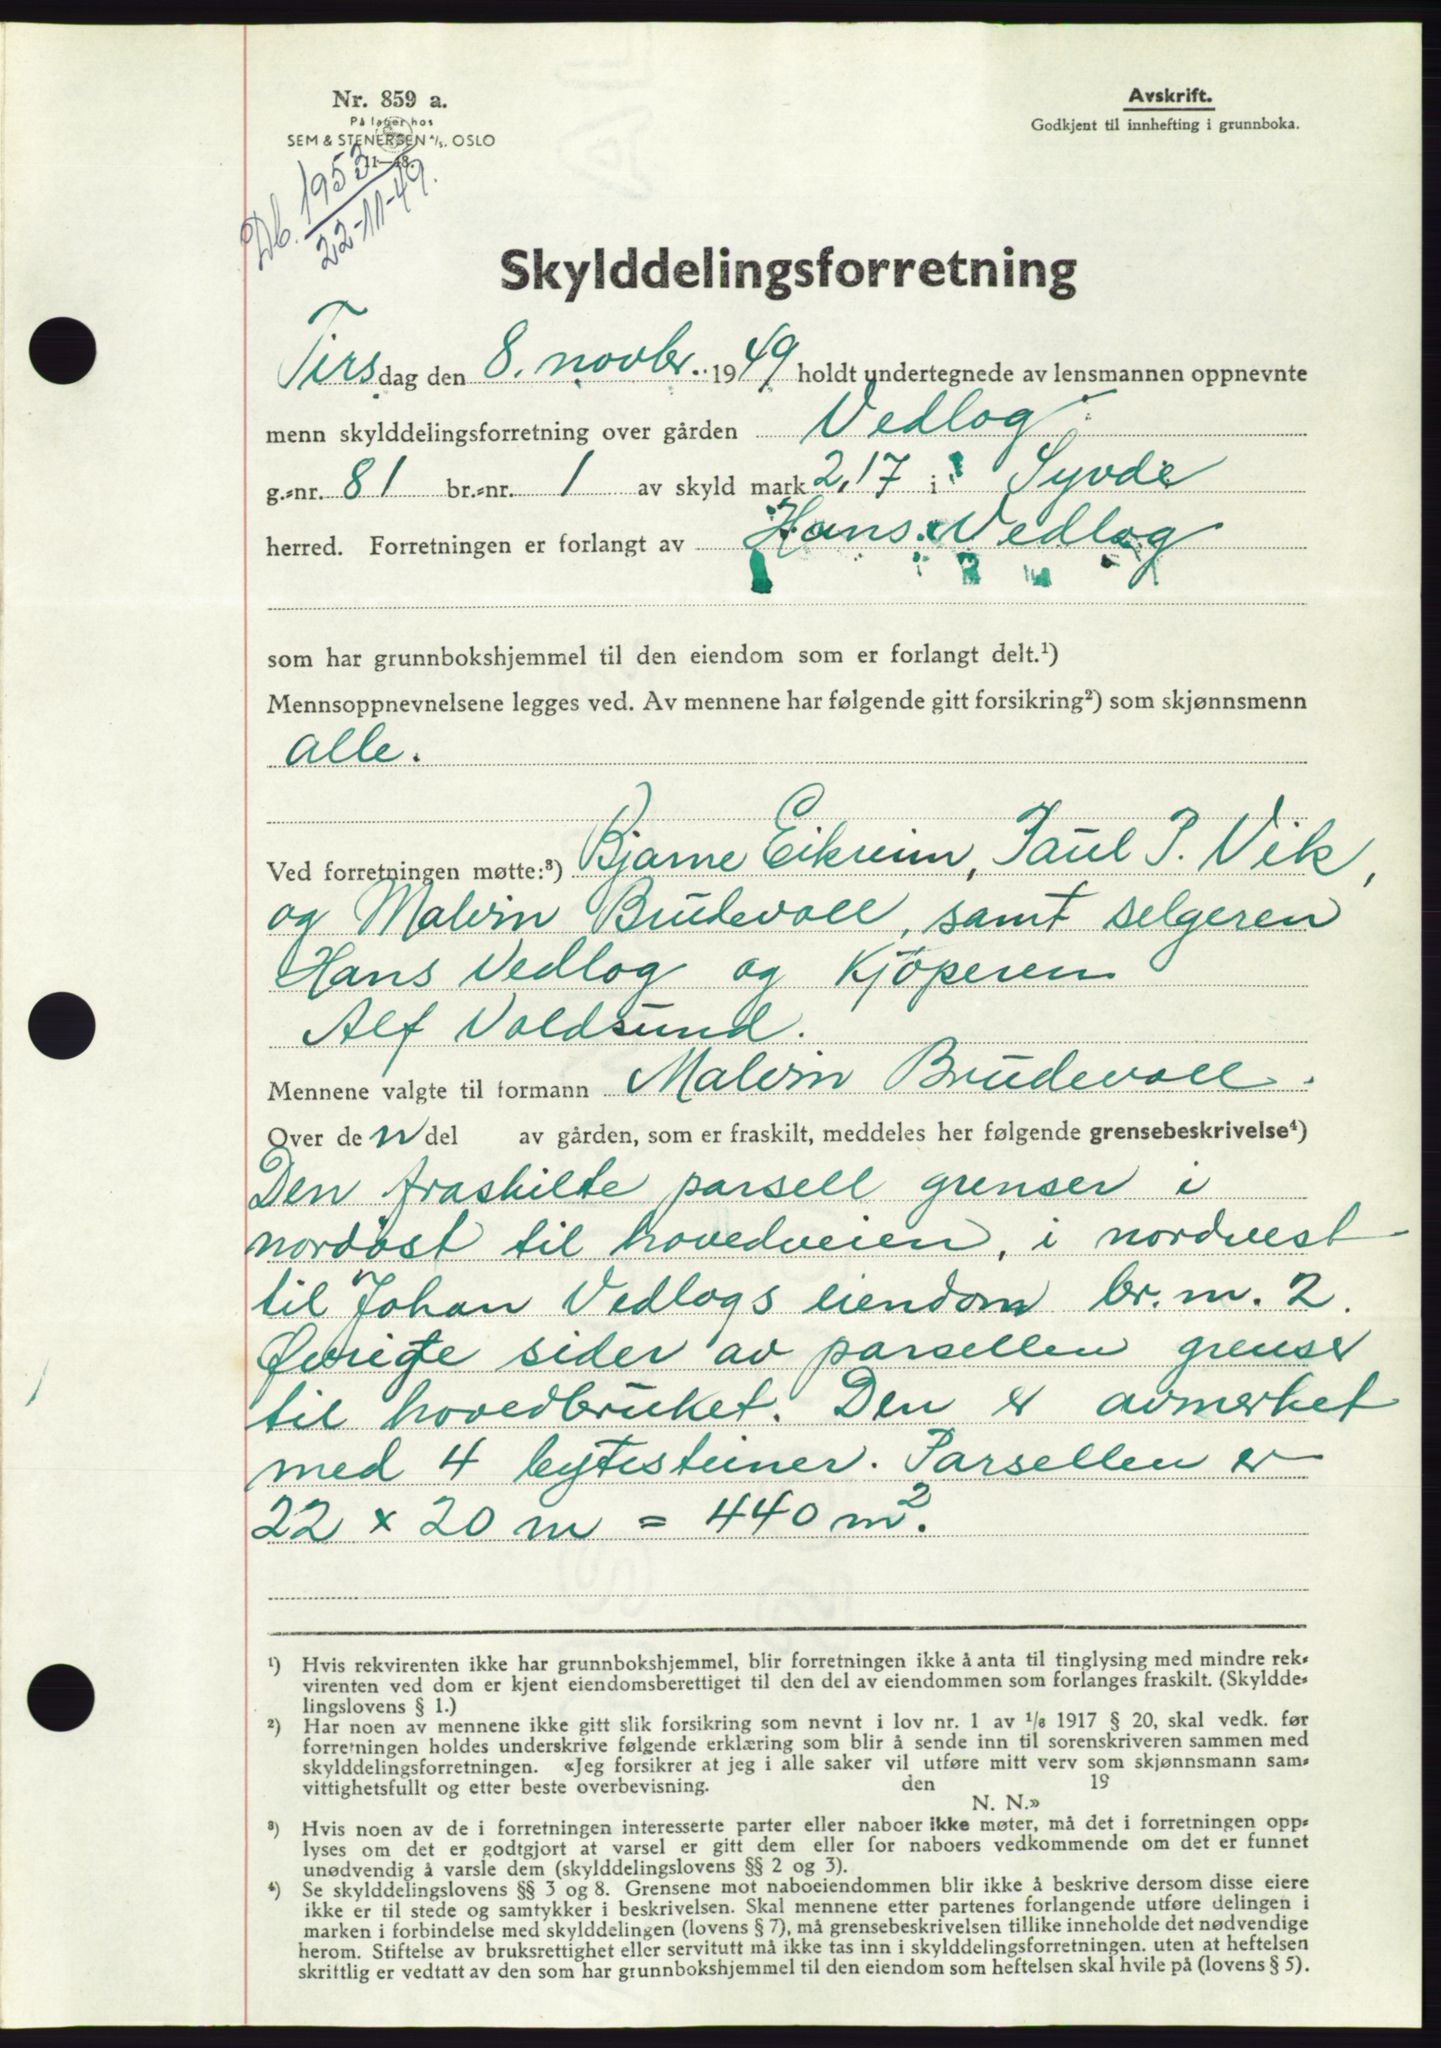 Nr. 859 a.
På lager hos
SEM & STENERSEN A/S, OSLO
11—48.
Db. 1953
22-11-49.
Avskrift.
Godkjent til innhefting i grunnboka.
Skylddelingsforretning
Tirsdag den 8. novbr. 1949 holdt undertegnede av lensmannen oppnevnte
menn skylddelingsforretning over gården Vedlog
g.-nr. 81 br.-nr. 1 av skyld mark 2,17 i Syvde
herred. Forretningen er forlangt av Hans Vedlog
som har grunnbokshjemmel til den eiendom som er forlangt delt.¹)
Mennsoppnevnelsene legges ved. Av mennene har følgende gitt forsikring²) som skjønnsmenn
alle.
Ved forretningen møtte:³) Bjarne Eikrem, Paul P. Vik,
og Malvin Brudevoll, samt selgeren
Hans Vedlog og kjøperen
Alf Voldsund.
Mennene valgte til formann Malvin Brudevoll.
Over den del av gården, som er fraskilt, meddeles her følgende grensebeskrivelse⁴)
Den fraskilte parsell grenser i
nordøst til hovedveien, i nordvest
til Johan Vedlogs eiendom br. nr. 2.
Øvrige sider av parsellen grenser
til hovedbruket. Den er avmerket
med 4 bytesteiner. Parsellen er
22 x 20 m = 440 m².
¹) Hvis rekvirenten ikke har grunnbokshjemmel, blir forretningen ikke å anta til tinglysing med mindre rek-
virenten ved dom er kjent eiendomsberettiget til den del av eiendommen som forlanges fraskilt. (Skyldde-
lingslovens § 1.)
²) Har noen av mennene ikke gitt slik forsikring som nevnt i lov nr. 1 av 1/6 1917 § 20, skal vedk. før
forretningen holdes underskrive følgende erklæring som blir å sende inn til sorenskriveren sammen med
skylddelingsforretningen. «Jeg forsikrer at jeg i alle saker vil utføre mitt verv som skjønnsmann sam-
vittighetsfullt og etter beste overbevisning. den 19
N. N.»
³) Hvis noen av de i forretningen interesserte parter eller naboer ikke møter, må det i forretningen opp-
lyses om det er godtgjort at varsel er gitt dem eller for naboers vedkommende om det er funnet
unødvendig å varsle dem (skylddelingslovens §§ 2 og 3).
⁴) Se skylddelingslovens §§ 3 og 8. Grensene mot naboeiendommen blir ikke å beskrive dersom disse eiere
ikke er til stede og samtykker i beskrivelsen. Skal mennene etter partenes forlangende utføre delingen i
marken i forbindelse med skylddelingen (lovens § 7), må grensebeskrivelsen tillike inneholde det nødvendige
herom. Stiftelse av bruksrettighet eller servitutt må ikke tas inn i skylddelingsforretningen. uten at heftelsen
skriftlig er vedtatt av den som har grunnbokshjemmel til den eiendom som heftelsen skal hvile på (lovens § 5).